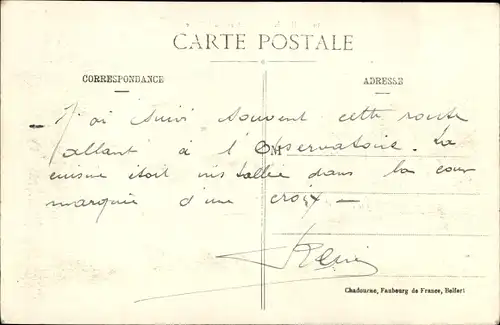 CARTE POSTALE
CORRESPONDANCE
ADRESSE
– J'ai suivi souvent cette route
allant à l'Observatoire. La
M
cuisine était installée dans la cour
marquée d'une croix –
Chadourne, Faubourg de France, Belfort